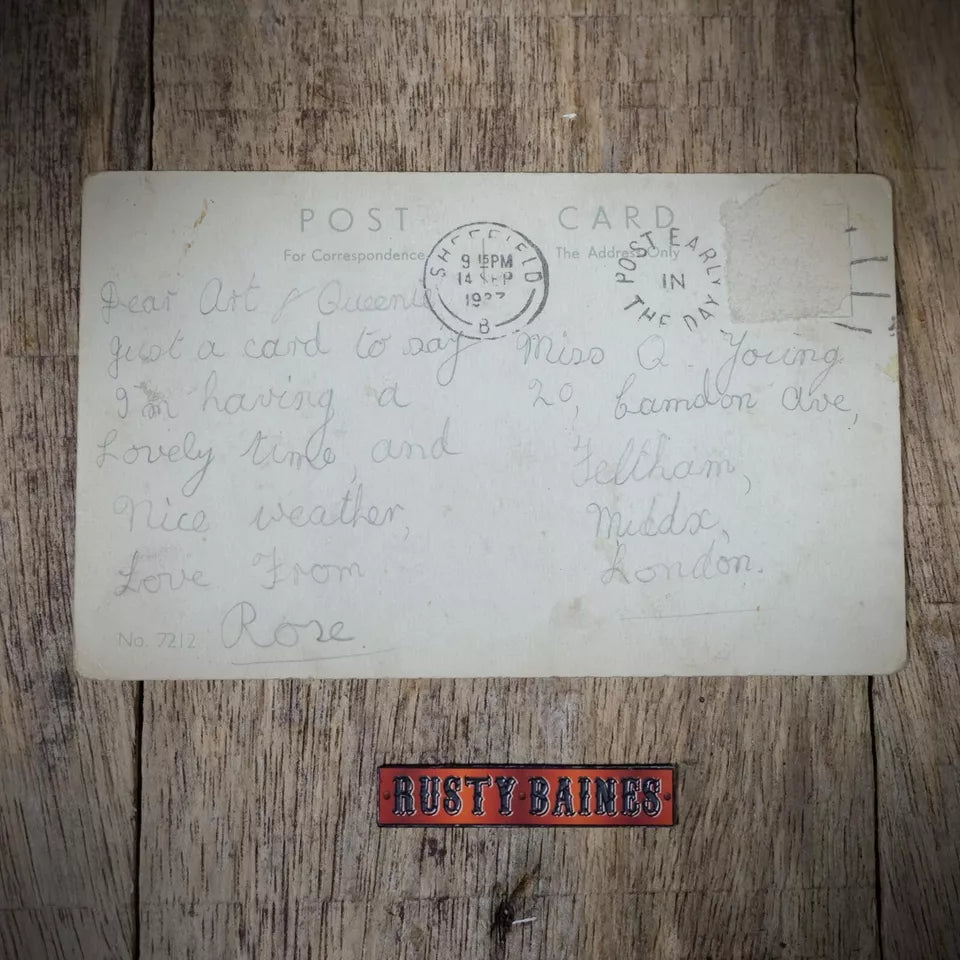 POST CARD
For Correspondence
The Address Only
SHEFFIELD
9 15 PM
14 SEP
B
POST EARLY
IN
THE DAY
Dear Art & Queenie
Just a card to say
I'm having a
Lovely time, and
Nice weather,
Love From
Rose
No. 7212
Miss Q. Young
20, Camdon Ave,
Feltham,
Middx,
London.
RUSTY BAINES